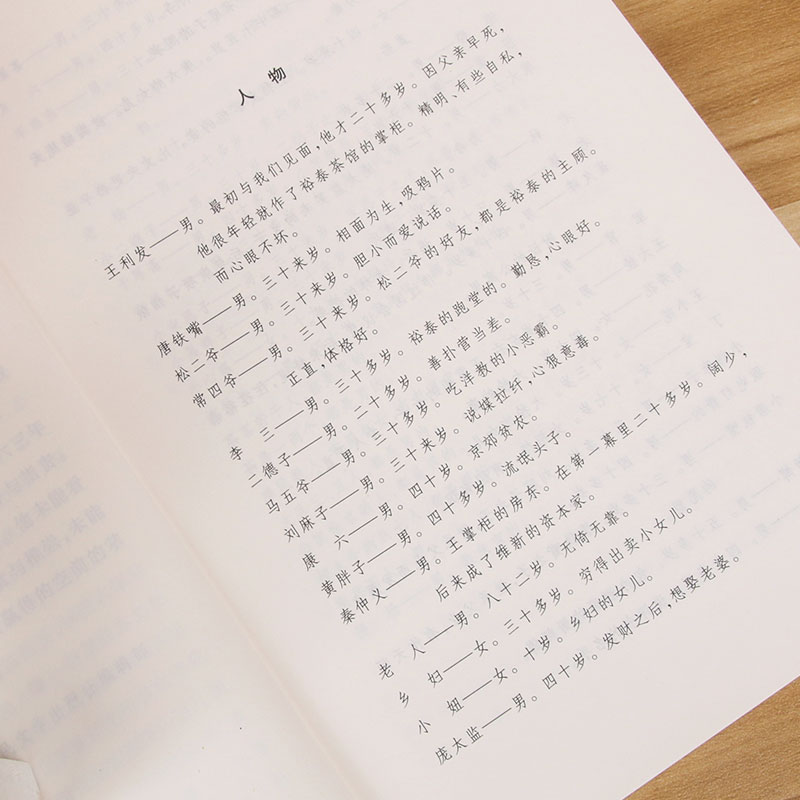 人物
王利发——男。最初与我们见面，他才二十多岁。因父亲早死，
他很年轻就作了裕泰茶馆的掌柜。精明、有些自私，
而心眼不坏。
唐铁嘴——男。三十来岁。相面为生，吸鸦片。
松二爷——男。三十来岁。胆小而爱说话。
常四爷——男。三十来岁。松二爷的好友，都是裕泰的主顾。
正直，体格好。
李三——男。三十多岁。裕泰的跑堂的。勤恳，心眼好。
二德子——男。二十多岁。善扑营当差。
马五爷——男。三十多岁。吃洋教的小恶霸。
刘麻子——男。三十来岁。说媒拉纤，心狠意毒。
康六——男。四十岁。京郊贫农。
黄胖子——男。四十多岁。流氓头子。
秦仲义——男。王掌柜的房东。在第一幕里二十多岁。阔少，
后来成了维新的资本家。
老人——男。八十二岁。无倚无靠。
乡妇——女。三十多岁。穷得出卖小女儿。
小妞——女。十岁。乡妇的女儿。
庞太监——男。四十岁。发财之后，想娶老婆。